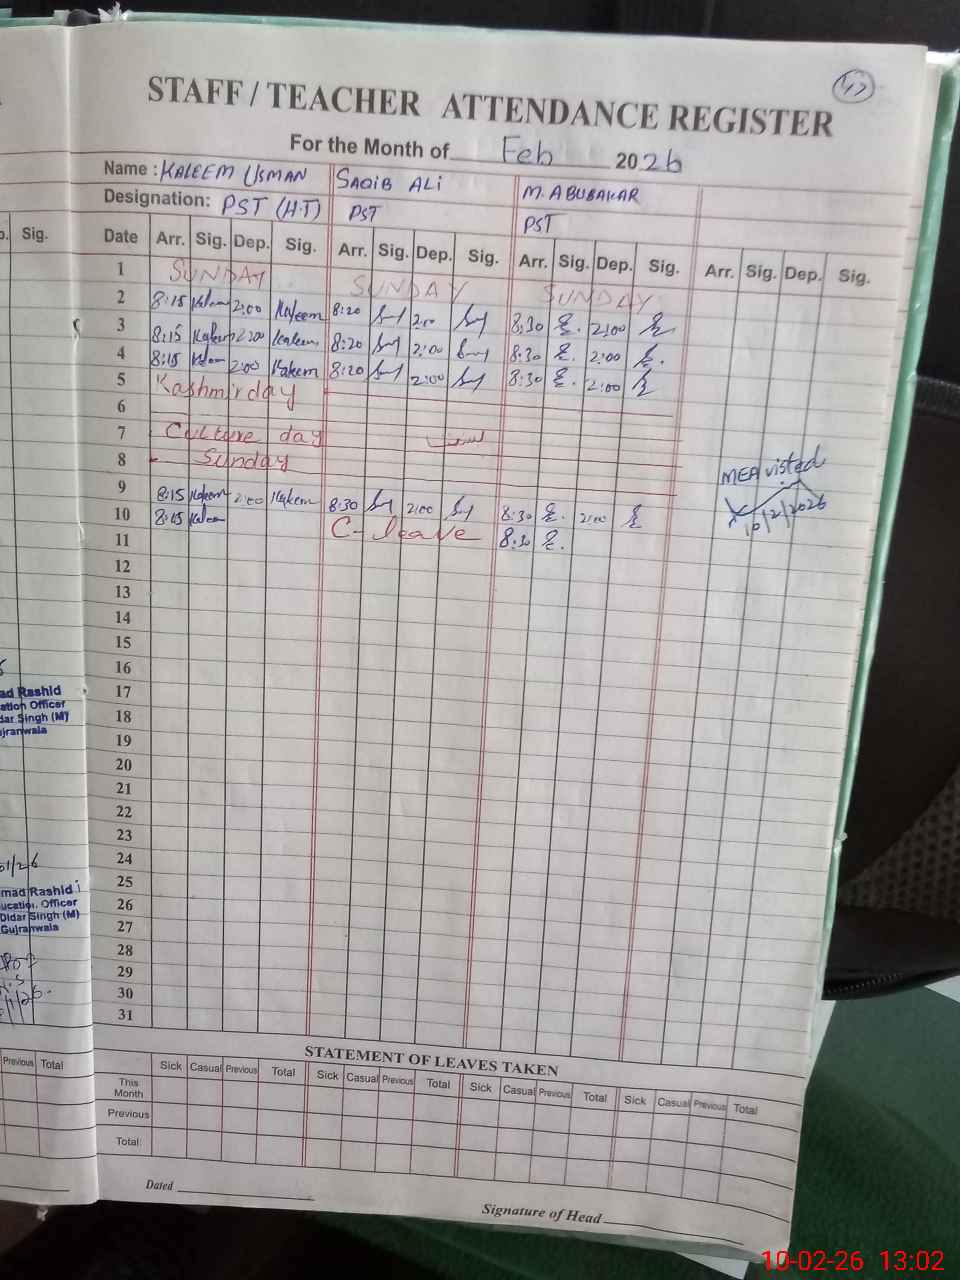 43
STAFF / TEACHER ATTENDANCE REGISTER
For the Month of Feb 2026
Name : KALEEM USMAN SAQIB ALi M. ABUBAKAR
Designation: PST (H.T) PST PST
Date Arr. Sig. Dep. Sig. Arr. Sig. Dep. Sig. Arr. Sig. Dep. Sig. Arr. Sig. Dep. Sig.
1 SUNDAY SUNDAY SUNDAY
2 8:15 Kaleem 2:00 Kaleem 8:20 2:00 8:30 2:00
3 8:15 Kaleem 2:00 Kaleem 8:20 2:00 8:30 2:00
4 8:15 Kaleem 2:00 Kaleem 8:20 2:00 8:30 2:00
5 Kashmir day
6
7 Culture day
8 Sunday
9 8:15 Kaleem 2:00 Kaleem 8:30 2:00 8:30 2:00
10 8:15 Kaleem C-leave 8:30
MEA visted
10/2/2026
11
12
13
14
15
16
17
18
19
20
21
22
23
24
25
26
27
28
29
30
31
STATEMENT OF LEAVES TAKEN
Sick Casual Previous Total Sick Casual Previous Total Sick Casual Previous Total Sick Casual Previous Total
This Month
Previous
Total:
Dated
Signature of Head
Sig.
ad Rashid
ation Officer
dar Singh (M)
ujranwala
01/26
mad Rashid
ucation Officer
Didar Singh (M)
Gujranwala
Previous Total
10-02-26 13:02